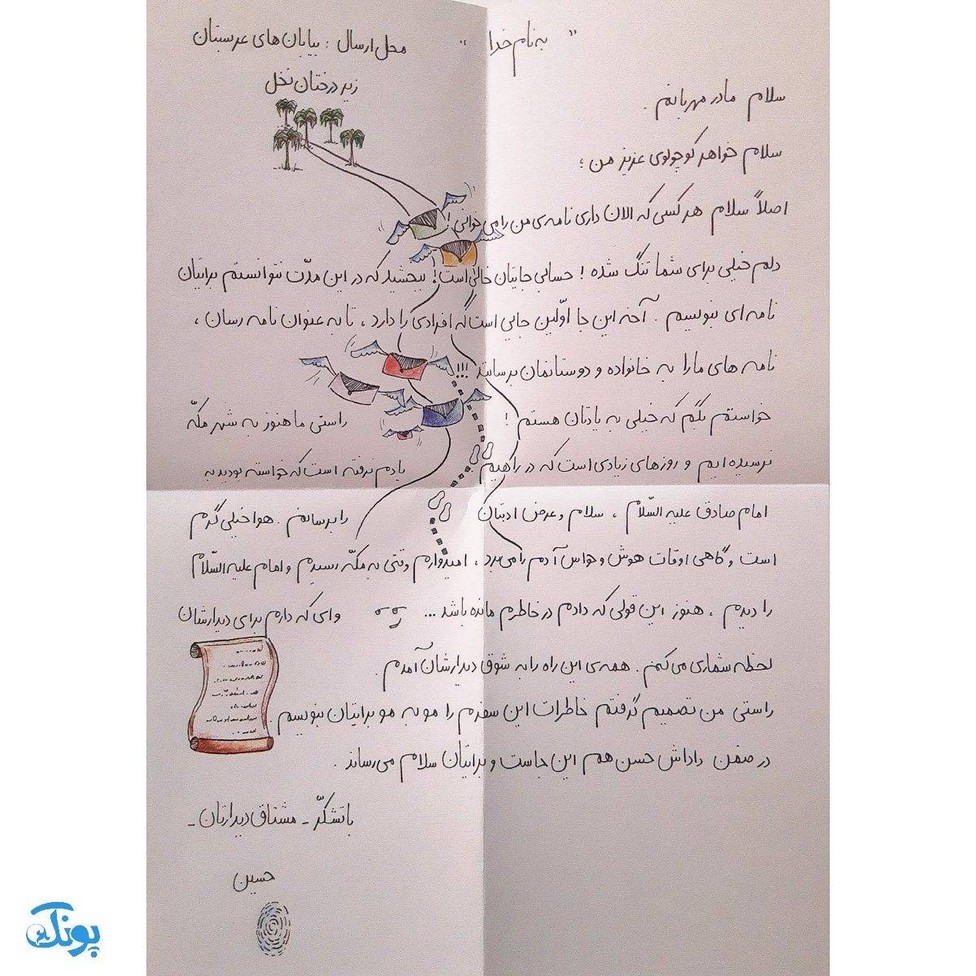 " به نام خدا "
محل ارسال : بیابان های عربستان
زیر درختان نخل
سلام مادر مهربانم .
سلام خواهر کوچولوی عزیز من ؛
اصلاً سلام هر کسی که الان داری نامه ی من را می خوانی !
دلم خیلی برای شما تنگ شده ! حسابی جایتان خالی است ! ببخشید که در این مدّت نتوانستم برایتان
نامه ای بنویسم . آخه این جا اوّلین جایی است که افرادی را دارد ، تا به عنوان نامه رسان ،
نامه های ما را به خانواده و دوستانمان برسانند !!!
خواستم بگم که خیلی به یادتان هستم ! راستی ما هنوز به شهر مکّه
نرسیده ایم و روزهای زیادی است که در راهیم یادم نرفته است که خواسته بودید به
امام صادق علیه السّلام ، سلام و عرض ادبتان را برسانم . هوا خیلی گرم
است و گاهی اوقات هوش و حواس آدم را می برد ، امیدوارم وقتی به مکّه رسیدم و امام علیه السّلام
را دیدم ، هنوز این قولی که دادم در خاطرم مانده باشد ... وای که دارم برای دیدارشان
لحظه شماری می کنم . همه ی این راه را به شوق دیدارشان آمدم .
راستی من تصمیم گرفتم خاطرات این سفرم را مو به مو برایتان بنویسم .
در ضمن داداش حسن هم این جاست و برایتان سلام می رساند .
با تشکّر - مشتاق دیدارتان -
حسین
پونک